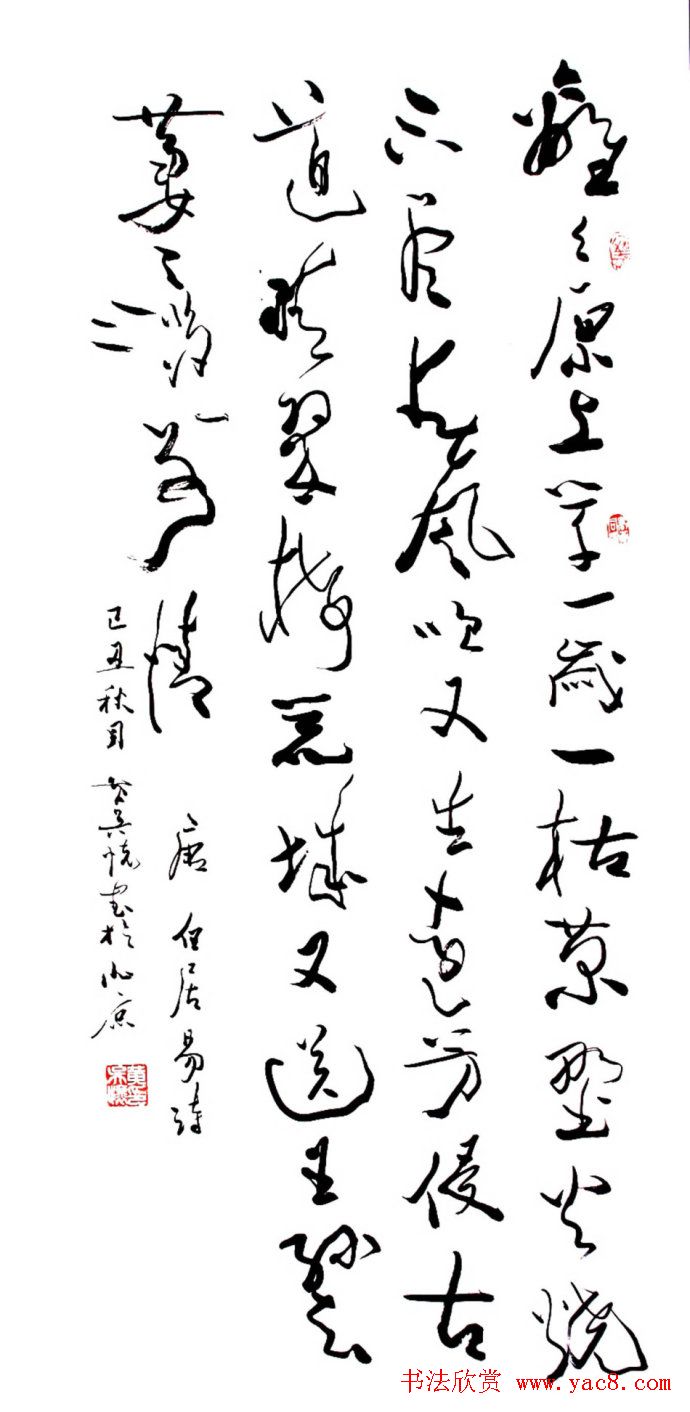 離々原上草一歲一枯榮野火燒
不盡春風吹又生遠芳侵古
道晴翠接荒城又送王孫去
萋々滿別情 唐 白居易詩
己丑秋月 書於北京
书法欣赏 www.yac8.com